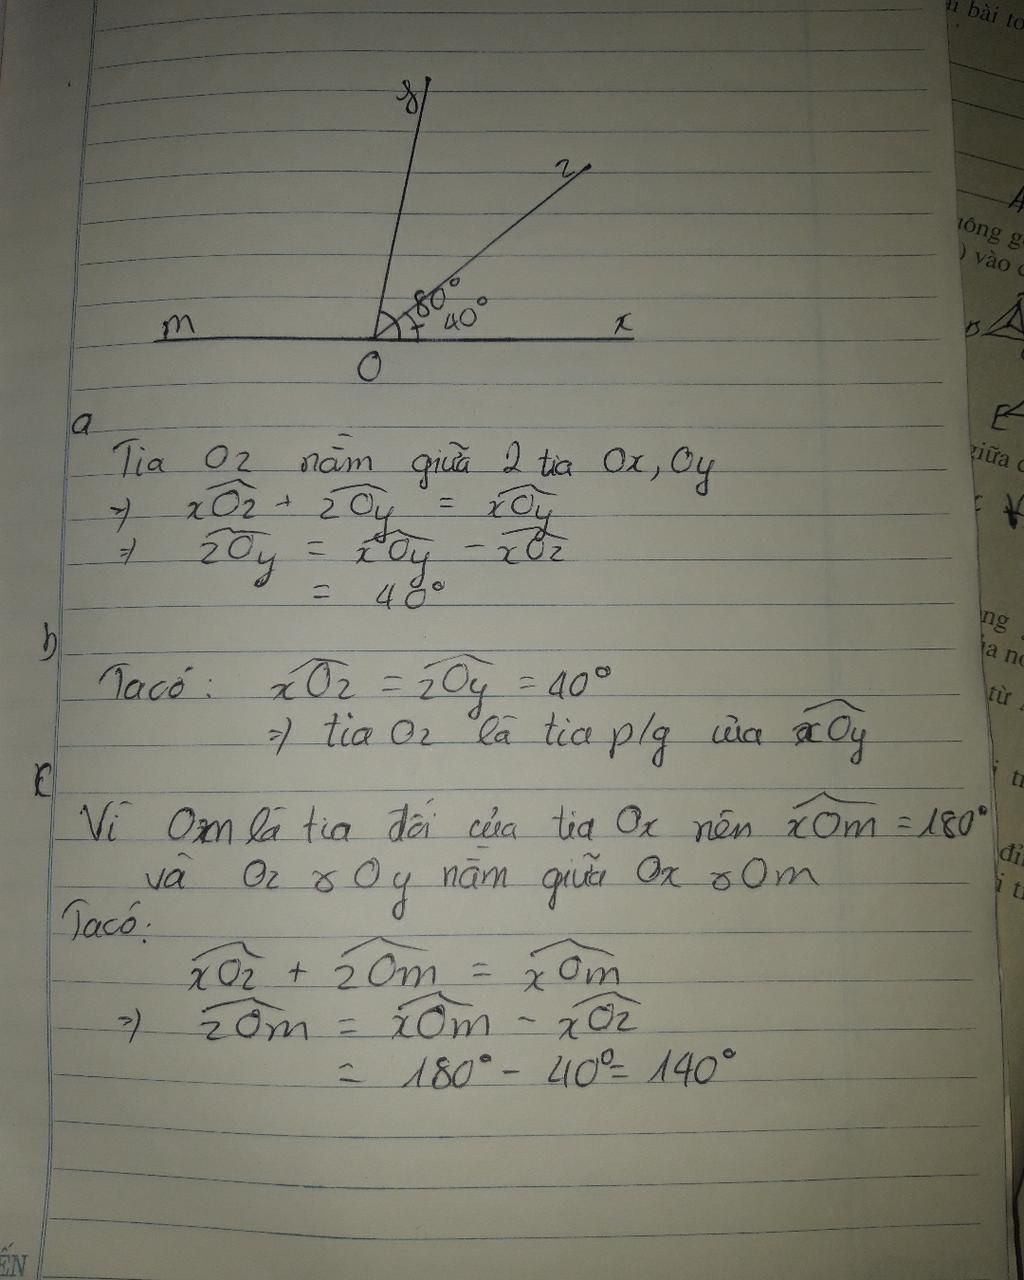 y
z
80°
40°
m
x
O
a
Tia Oz nằm giữa 2 tia Ox, Oy
=> xOz + zOy = xOy
=> zOy = xOy - xOz
= 40°
b
Ta có: xOz = zOy = 40°
=> tia Oz là tia p/g của xOy
c
Vì Om là tia đối của tia Ox nên xOm = 180°
và Oz & Oy nằm giữa Ox & Om
Ta có:
xOz + zOm = xOm
=> zOm = xOm - xOz
= 180° - 40° = 140°
ẾN
vào
E
giữa
từ